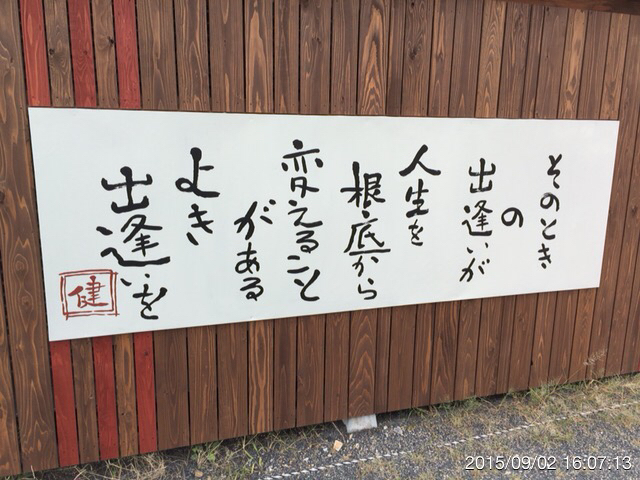 そのとき
の
出逢いが
人生を
根底から
変えること
がある
よき
出逢いを
健
2015/09/02 16:07:13